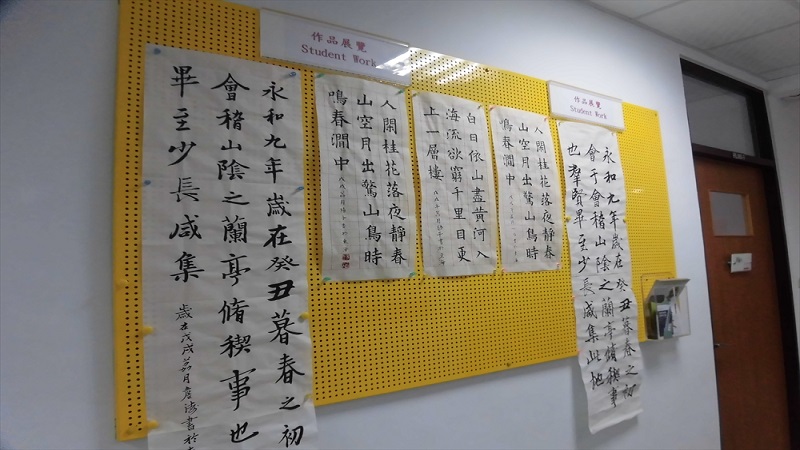 作品展覽
Student Work
永和九年歲在癸丑暮春之初
會稽山陰之蘭亭脩稧事也
畢至少長咸集
歲在戊戌
人閒桂花落夜靜春
山空月出驚山鳥時
鳴春澗中
白日依山盡黃河入
海流欲窮千里目更
上一層樓
人閒桂花落夜靜春
山空月出驚山鳥時
鳴春澗中
作品展覽
Student Work
永和九年歲在癸丑暮春之初
會于會稽山陰之蘭亭脩稧事
也羣賢畢至少長咸集此地